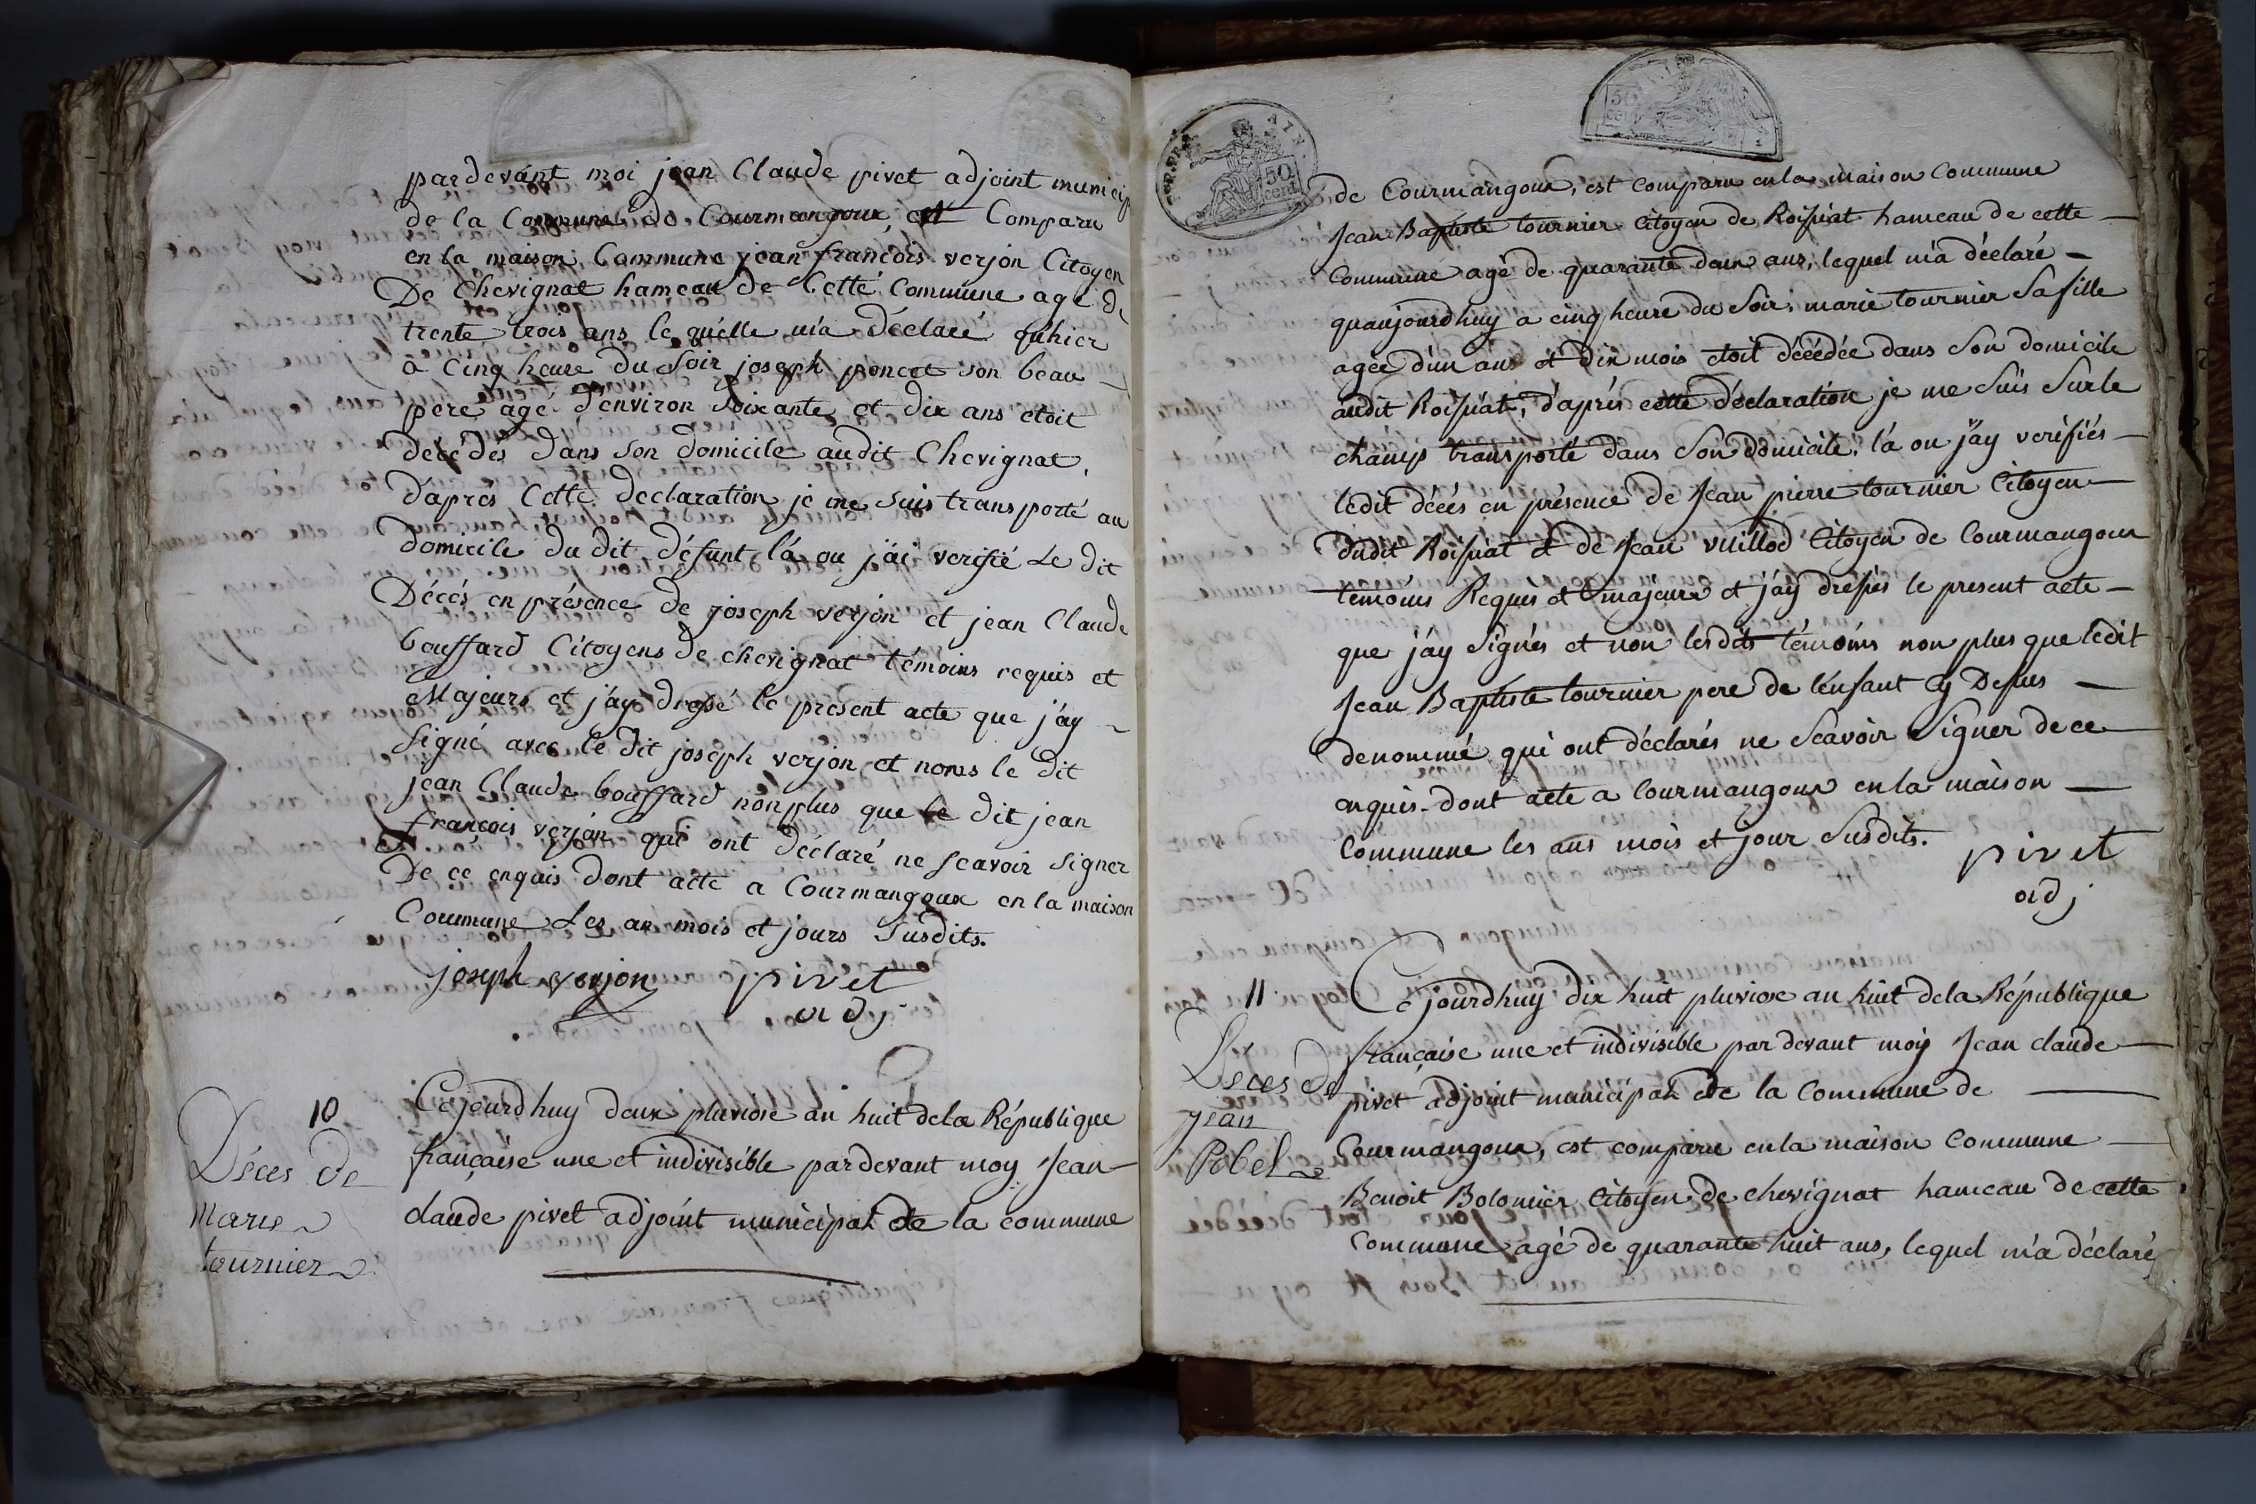 pardevant moi jean Claude pivet adjoint municip
de la Commune de Courmangoux, est Comparu
en la maison Commune jean francois verjon Citoyen
De Chevignat hameau de Cette Commune age de
trente trois ans le quelle m'a déclaré qu'hier
a Cinq heure du soir joseph poncet son beau
pere agé d'environ soixante et dix ans etoit
décédés dans son domicile audit Chevignat,
d'apres Cette declaration je me suis transporté au
domicile du dit défunt là ou j'ai verifié Le dit
Décés en présence de joseph verjon et jean Claude
bouffard Citoyens de chevignat témoins requis et
Majeurs et j'ay dressé le present acte que j'ay
signé avec le dit joseph verjon et nons le dit
jean Claude bouffard non plus que le dit jean
françois verjon qui ont déclaré ne scavoir signer
De ce enquis dont acte a Courmangoux en la maison
Commune Les an mois et jours susdits.
joseph verjon pivet
adj
10
Déces de
Marie
tournier
Cejourdhuy deux pluviose an huit dela République
française une et indivisible pardevant moy Jean
claude pivet adjoint municipal de la commune
50
cent
50
cent
de Courmangoux, est comparu enla maison Commune
Jean Baptiste tournier Citoyen de Roissiat hameau de cette
Commune agé de quarante deux ans, lequel m'a déclaré
quaujourdhuy a cinq heure du Soir, marie tournier Sa fille
agée d'un ans et dix mois etoit décédée dans Son domicile
audit Roissiat, d'aprés cette déclaration je me Suis Surle
champ transporté dans Son domicile, là ou j'ay verifiés
ledit décés en présence de Jean pierre tournier Citoyen
dudit Roissiat et de Jean vuillod Citoyen de Courmangoux
témoins Requis et majeurs et j'ay dressés le present acte
que j'ay Signés et non lesdits témoins non plus que ledit
Jean Baptiste tournier pere de l'enfant Cy Dessus
denommé qui ont déclarés ne Scavoir Signer de ce
enquis dont acte a Courmangoux en la maison
Commune les ans mois et jour Susdits.
pivet
adj
11
Déces de
jean
Pobel
Ce jourdhuy dix huit pluviose an huit dela République
française une et indivisible par devant moy Jean claude
pivet adjoint municipal de la Commune de
Courmangoux, est comparu en la maison Commune
Benoit Bolomier Citoyen de chevignat hameau de cette
Commune agé de quarante huit ans, lequel m'a déclaré